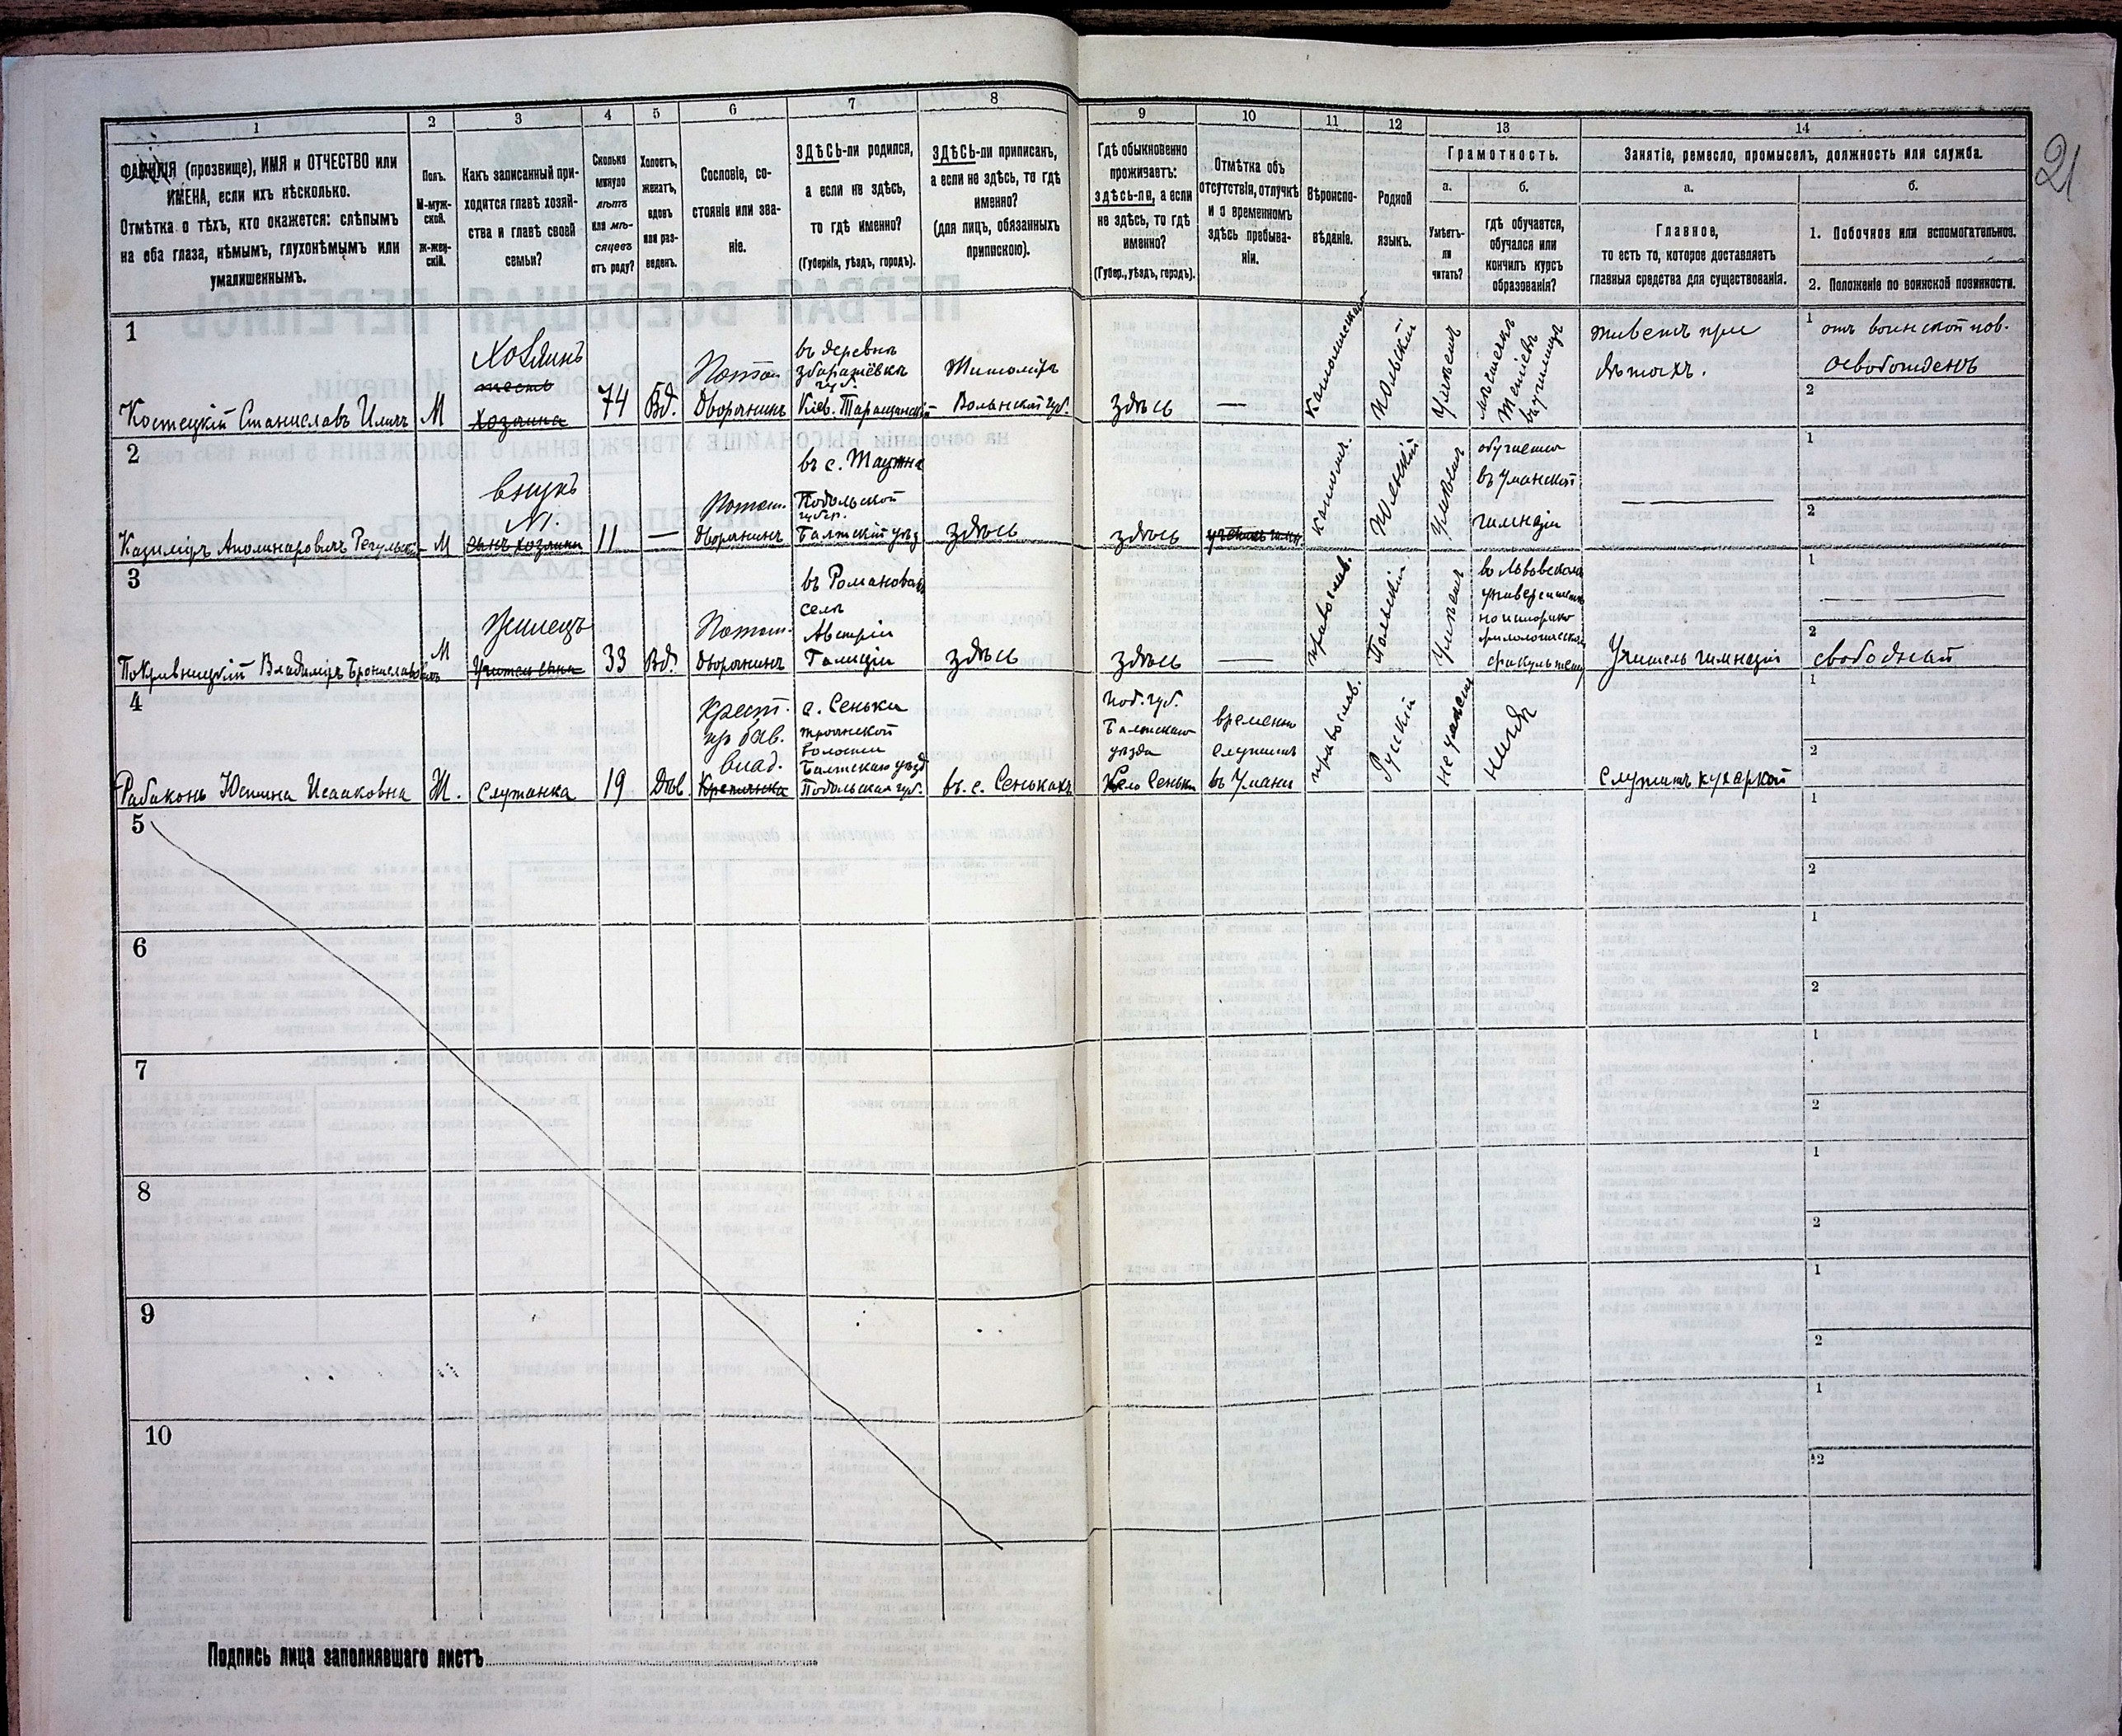 21
1 2 3 4 5 6 7 8 9 10 11 12 13 14
ФАМИЛІЯ (прозвище), ИМЯ и ОТЧЕСТВО или
ИМЕНА, если ихъ нѣсколько.
Отмѣтка о тѣхъ, кто окажется: слѣпымъ
на оба глаза, нѣмымъ, глухонѣмымъ или
умалишеннымъ.
Полъ.
М-муж-
ской.
Ж-жен-
скій.
Какъ записанный при-
ходится главѣ хозяй-
ства и главѣ своей
семьи?
Сколько
минуло
лѣтъ
или мѣ-
сяцевъ
отъ роду?
Холостъ,
женатъ,
вдовъ
или раз-
веденъ.
Сословіе, со-
стояніе или зва-
ніе.
ЗДѢСЬ-ли родился,
а если не здѣсь,
то гдѣ именно?
(Губернія, уѣздъ, городъ).
ЗДѢСЬ-ли приписанъ,
а если не здѣсь, то гдѣ
именно?
(для лицъ, обязанныхъ
припискою).
Гдѣ обыкновенно
проживаетъ:
здѣсь-ли, а если
не здѣсь, то гдѣ
именно?
(Губер., уѣздъ, городъ).
Отмѣтка объ
отсутствіи, отлучкѣ
и о временномъ
здѣсь пребыва-
ніи.
Вѣроиспо-
вѣданіе.
Родной
языкъ.
Грамотность.
а.
Умѣетъ-
ли
читать?
б.
гдѣ обучается,
обучался или
кончилъ курсъ
образованія?
Занятіе, ремесло, промыселъ, должность или служба.
а.
Главное,
то есть то, которое доставляетъ
главныя средства для существованія.
б.
1. Побочное или вспомогательное.
2. Положеніе по воинской повинности.
1
Костецкій Станиславъ Иличъ
М
Хозяинъ
тесть
хозяина
74
Вд.
Потом.
Дворянинъ
въ деревнѣ
Збаражёвкѣ
губ.
Кіев. Таращанскій
Житоміръ
Волынской губ.
здѣсь
—
Католическая
польскій
Умѣетъ
мѣстечкѣ
Тетіевѣ
въ училищѣ
живетъ при
дѣтяхъ.
1
отъ воинской пов.
освобожденъ
2
2
Казиміръ Аполинаровичъ Регульскій
М
внукъ
№1.
сынъ хозяина
11
—
Потом.
дворянинъ
въ с. Таужна
Подольской
губерн.
Балтскій уѣз
здѣсь
здѣсь
католич.
Польскій
Умѣетъ
обучается
въ Уманской
гимназіи
—
1
2
3
Покривницкій Владиміръ Брониславовичъ
М
Жилецъ
33
Вд.
Потом.
дворянинъ
въ Романовомъ
селѣ
Австріи
Галиціи
здѣсь
здѣсь
—
православ.
Польскій
Умѣетъ
во Львовскомъ
университетѣ
по историко
филологическому
факультету
Учитель гимназіи
1
—
2
свободный
4
Рабаконь Юстина Исааковна
Ж.
служанка
19
Дѣв.
крест.
изъ быв.
влад.
Крестьянка
с. Сеньки
троянской
волости
Балтскаго уѣзд
Подольская губ.
въ с. Сенькахъ
Под. губ.
Балтскаго
уѣзда
село Сеньки
временно
служитъ
въ Умани
православ.
Русскій
не умѣетъ
нигдѣ
служитъ кухаркой
1
2
5
1
2
6
1
2
7
1
2
8
1
2
9
1
2
10
1
2
Подпись лица заполнявшаго листъ